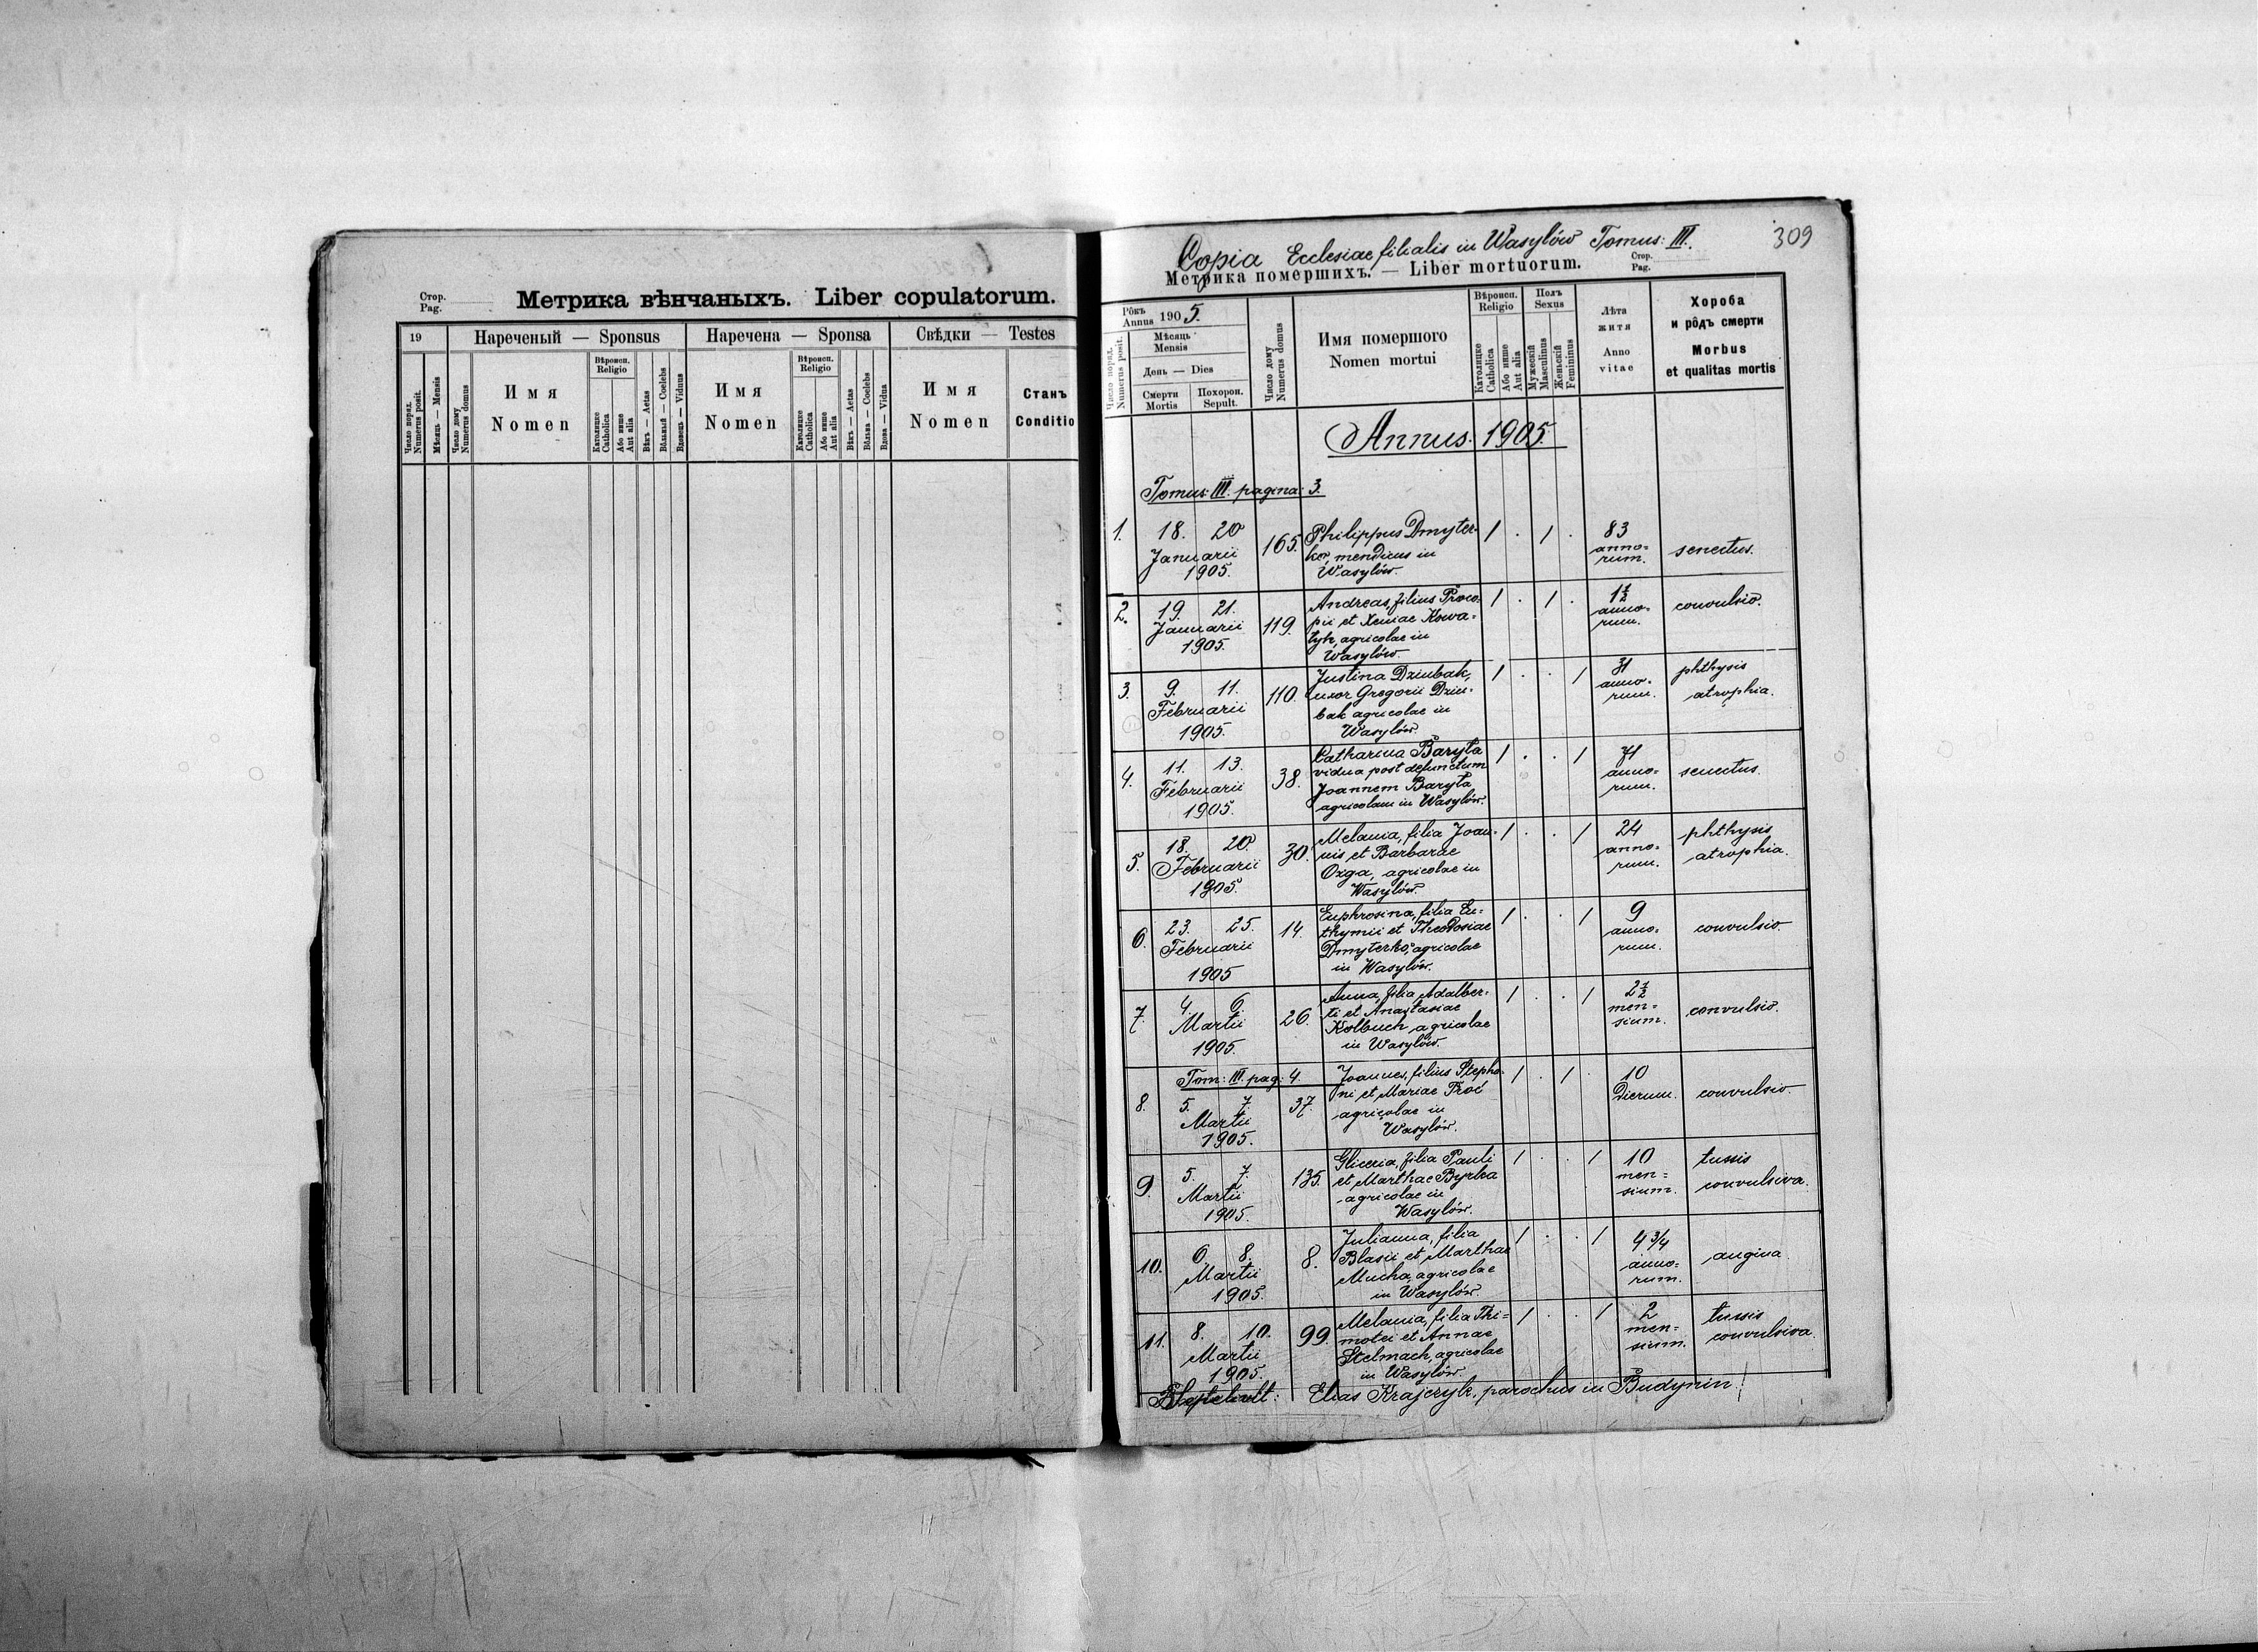 Стор.
Pag.
Метрика вѣнчаныхъ. Liber copulatorum.
19
Нареченый — Sponsus
Наречена — Sponsa
Свѣдки — Testes
Число поряд.
Numerus posit.
Мѣсяць — Mensis
Число дому
Numerus domus
Имя
Nomen
Вѣроисп.
Religio
Католицке
Catholica
Або инше
Aut alia
Вѣкъ — Aetas
Вôльный — Coelebs
Вдовець — Viduus
Имя
Nomen
Вѣроисп.
Religio
Католицке
Catholica
Або инше
Aut alia
Вѣкъ — Aetas
Вôльна — Coelebs
Вдова — Vidua
Имя
Nomen
Станъ
Conditio
Copia Ecclesiae filialis in Wasylów Tomus: III.
309
Метрика помершихъ. — Liber mortuorum.
Стор.
Pag.
Рôкъ
Annus 1905.
Число поряд.
Numerus posit.
Мѣсяць
Mensis
День — Dies
Смерти
Mortis
Похорон.
Sepult.
Число дому
Numerus domus
Имя помершого
Nomen mortui
Вѣроисп.
Religio
Католицке
Catholica
Або инше
Aut alia
Полъ
Sexus
Мужескій
Masculinus
Женьскій
Femininus
Лѣта
житя
Anno
vitae
Хороба
и рôдъ смерти
Morbus
et qualitas mortis
Annus. 1905.
Tomus III. pagina: 3.
1. 18. 20 165. Philippus Dmyter- 1 . 1 . 83
Januarii ko, mendicus in anno= senectus.
1905. Wasylów. rum.
2. 19. 21. 119. Andreas, filius Proco- 1 . 1 . 1½ convulsio.
Januarii pii et Xeniae Kowa= anno=
1905. tyk, agricolae in rum.
Wasylów.
3. 9. 11. 110. Justina Dziubak, 1 . . 1 31 phthysis
Februarii uxor Gregorii Dziu- anno= atrophia.
1905. bak agricolae in rum.
Wasylów.
4. 11. 13. 38. Catharina Baryła 1 . . 1 71
Februarii vidua post defunctum anno= senectus.
1905. Joannem Baryła rum.
agricolam in Wasylów.
5. 18. 20. 30. Melania, filia Joan- 1 . . 1 24 phthysis
Februarii nis et Barbarae anno= atrophia.
1905. Ozga, agricolae in rum.
Wasylów.
6. 23. 25. 14. Euphrosina, filia Eu= 1 . . 1 9
Februarii thymii et Theodosiae anno= convulsio.
1905 Dmyterko, agricolae rum.
in Wasylów.
7. 4. 6. 26. Anna, filia Adalber- 1 . . 1 2½
Martii ti et Anastasiae men= convulsio.
1905. Kolbuch agricolae sium.
in Wasylów.
Tom: III. pag: 4.
8. 5. 7. 37. Joannes, filius Stepha- 1 . 1 . 10
Martii ni et Mariae Proć Dierum. convulsio.
1905. agricolae in
Wasylów.
9. 5. 7. 135. Gliceria, filia Pauli 1 . . 1 10 tussis
Martii et Marthae Byrka men= convulsiva.
1905. agricolae in sium.
Wasylów.
10. 6. 8. 8. Julianna, filia 1 . . 1 4 3/4
Martii Blasii et Marthae anno= angina.
1905. Mucha, agricolae rum.
in Wasylów.
11. 8. 10. 99. Melania, filia Thi= 1 . . 1 2 tussis
Martii motei et Annae men= convulsiva.
1905. Stelmach, agricolae sium.
in Wasylów.
Elias Krajczyk, parochus in Budynin.